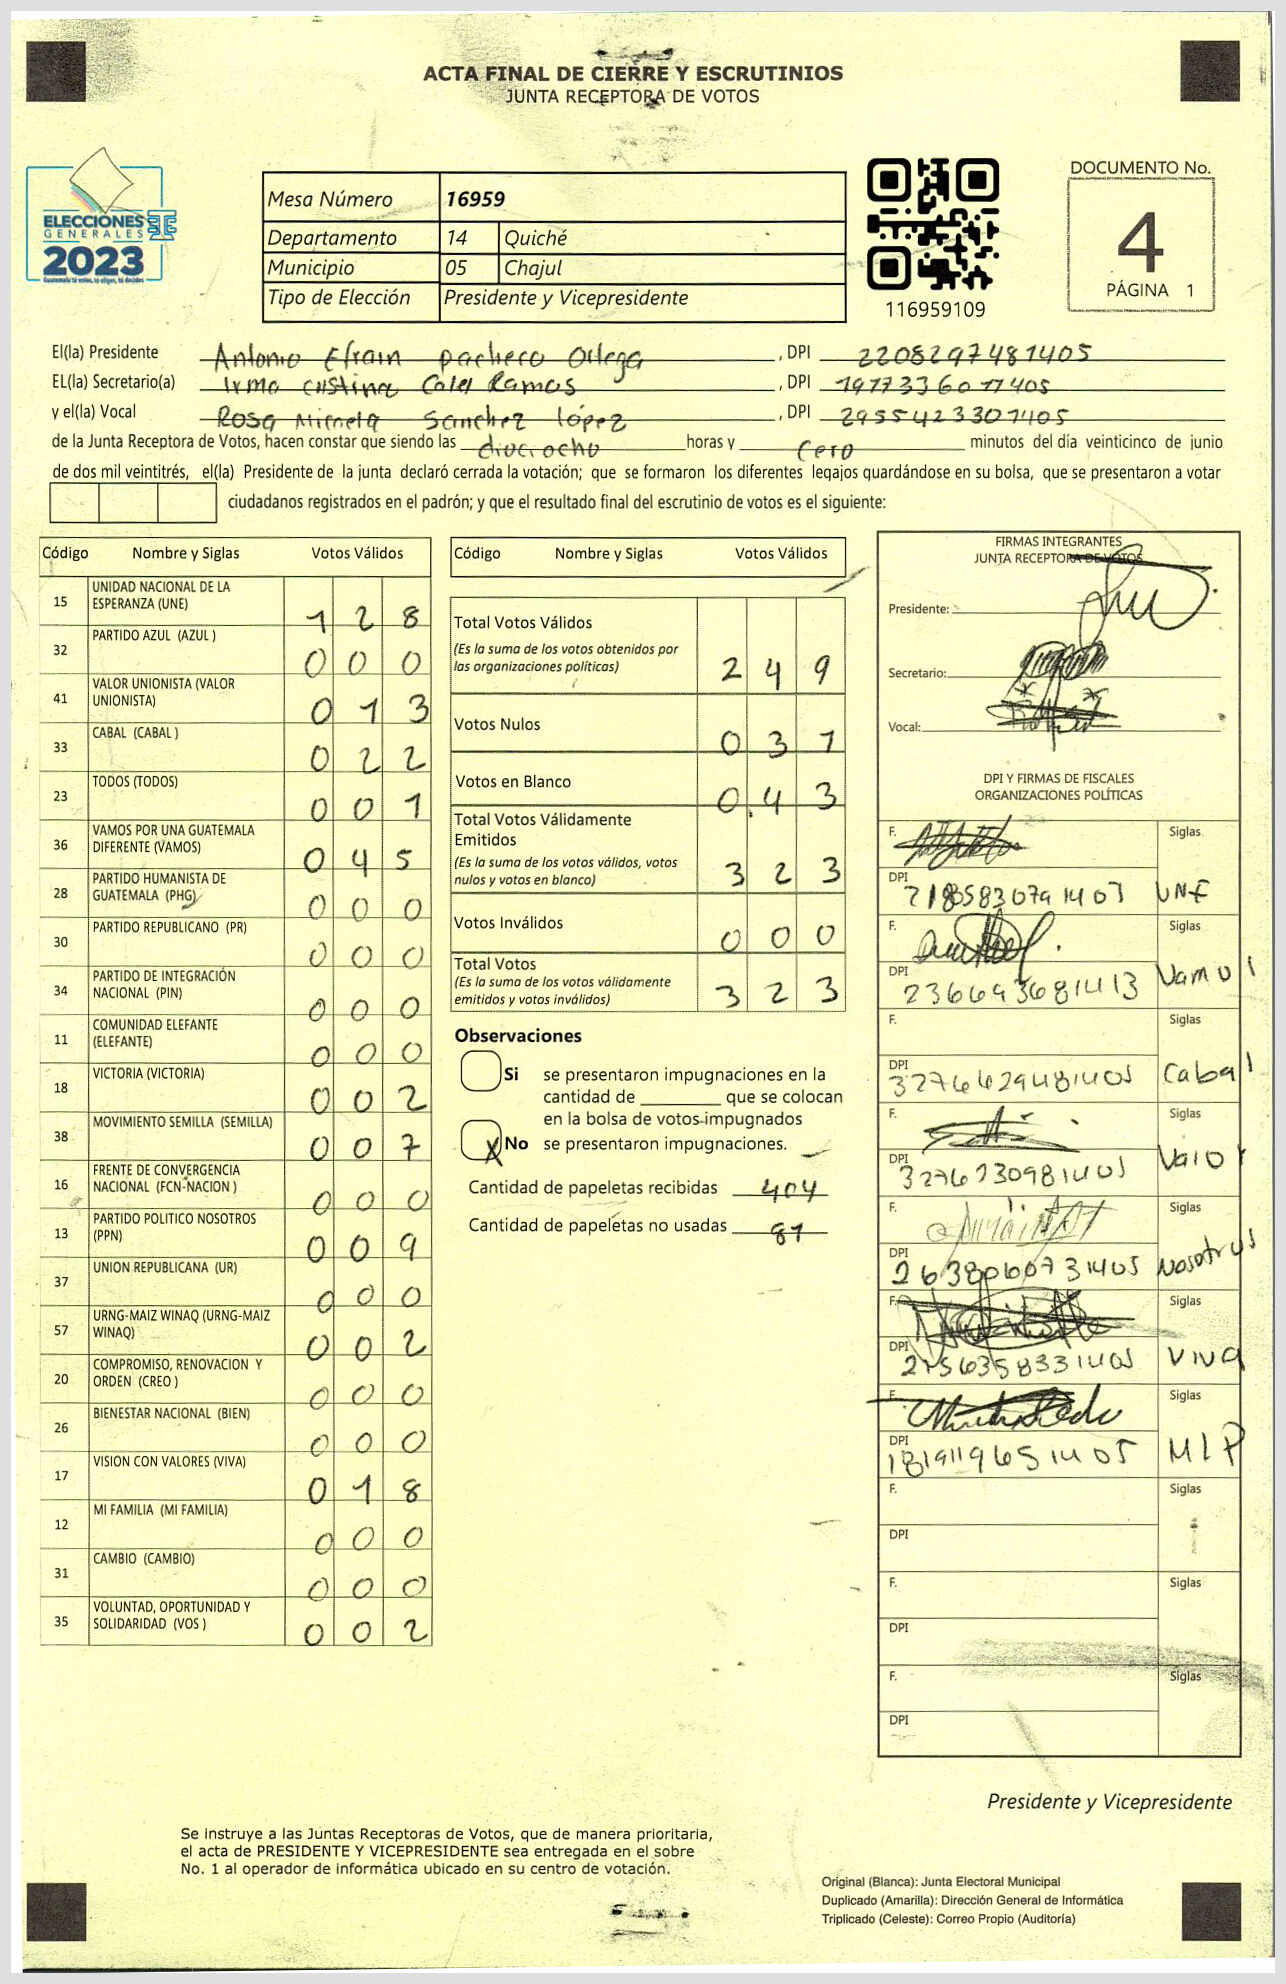 ACTA FINAL DE CIERRE Y ESCRUTINIOS
JUNTA RECEPTORA DE VOTOS
ELECCIONES
GENERALES
2023
Guatemala tú votas, tú eliges, tú decides
Mesa Número 16959
Departamento 14 Quiché
Municipio 05 Chajul
Tipo de Elección Presidente y Vicepresidente
116959109
DOCUMENTO No.
4
PÁGINA 1
El(la) Presidente Antonio Efrain pacheco Ortega , DPI 2208297481405
EL(la) Secretario(a) Irma Cristina Ramos , DPI
y el(la) Vocal Rosa Micaela Sanchez López , DPI 2955423301405
de la Junta Receptora de Votos, hacen constar que siendo las dieciocho horas y cero minutos del día veinticinco de junio
de dos mil veintitrés, el(la) Presidente de la junta declaró cerrada la votación; que se formaron los diferentes legajos quardándose en su bolsa, que se presentaron a votar
ciudadanos registrados en el padrón; y que el resultado final del escrutinio de votos es el siguiente:
Código Nombre y Siglas Votos Válidos
15 UNIDAD NACIONAL DE LA ESPERANZA (UNE) 1 2 8
32 PARTIDO AZUL (AZUL ) 0 0 0
41 VALOR UNIONISTA (VALOR UNIONISTA) 0 1 3
33 CABAL (CABAL ) 0 2 2
23 TODOS (TODOS) 0 0 1
36 VAMOS POR UNA GUATEMALA DIFERENTE (VAMOS) 0 4 5
28 PARTIDO HUMANISTA DE GUATEMALA (PHG) 0 0 0
30 PARTIDO REPUBLICANO (PR) 0 0 0
34 PARTIDO DE INTEGRACIÓN NACIONAL (PIN) 0 0 0
11 COMUNIDAD ELEFANTE (ELEFANTE) 0 0 0
18 VICTORIA (VICTORIA) 0 0 2
38 MOVIMIENTO SEMILLA (SEMILLA) 0 0 7
16 FRENTE DE CONVERGENCIA NACIONAL (FCN-NACION ) 0 0 0
13 PARTIDO POLITICO NOSOTROS (PPN) 0 0 9
37 UNION REPUBLICANA (UR) 0 0 0
57 URNG-MAIZ WINAQ (URNG-MAIZ WINAQ) 0 0 2
20 COMPROMISO, RENOVACION Y ORDEN (CREO ) 0 0 0
26 BIENESTAR NACIONAL (BIEN) 0 0 0
17 VISION CON VALORES (VIVA) 0 1 8
12 MI FAMILIA (MI FAMILIA) 0 0 0
31 CAMBIO (CAMBIO) 0 0 0
35 VOLUNTAD, OPORTUNIDAD Y SOLIDARIDAD (VOS ) 0 0 2
Código Nombre y Siglas Votos Válidos
Total Votos Válidos
(Es la suma de los votos obtenidos por
las organizaciones políticas) 2 4 9
Votos Nulos 0 3 1
Votos en Blanco 0 4 3
Total Votos Válidamente
Emitidos
(Es la suma de los votos válidos, votos
nulos y votos en blanco) 3 2 3
Votos Inválidos 0 0 0
Total Votos
(Es la suma de los votos válidamente
emitidos y votos inválidos) 3 2 3
Observaciones
Si se presentaron impugnaciones en la
cantidad de ________ que se colocan
en la bolsa de votos impugnados
X No se presentaron impugnaciones.
Cantidad de papeletas recibidas 404
Cantidad de papeletas no usadas 81
FIRMAS INTEGRANTES
JUNTA RECEPTORA DE VOTOS
Presidente:
Secretario:
Vocal:
DPI Y FIRMAS DE FISCALES
ORGANIZACIONES POLÍTICAS
F. Siglas
DPI UNE
F. Siglas
DPI 2366693681413 Vamos
F. Siglas
DPI 3276629481405 Cabal
F. Siglas
DPI 3276230981405 Valor
F. Siglas
DPI 2638060731405 Nosotros
F. Siglas
DPI 2756358331405 VIVA
F. Siglas
DPI 1819119651405 MLP
F. Siglas
DPI
F. Siglas
DPI
F. Siglas
DPI
Presidente y Vicepresidente
Se instruye a las Juntas Receptoras de Votos, que de manera prioritaria,
el acta de PRESIDENTE Y VICEPRESIDENTE sea entregada en el sobre
No. 1 al operador de informática ubicado en su centro de votación.
Original (Blanca): Junta Electoral Municipal
Duplicado (Amarilla): Dirección General de Informática
Triplicado (Celeste): Correo Propio (Auditoría)